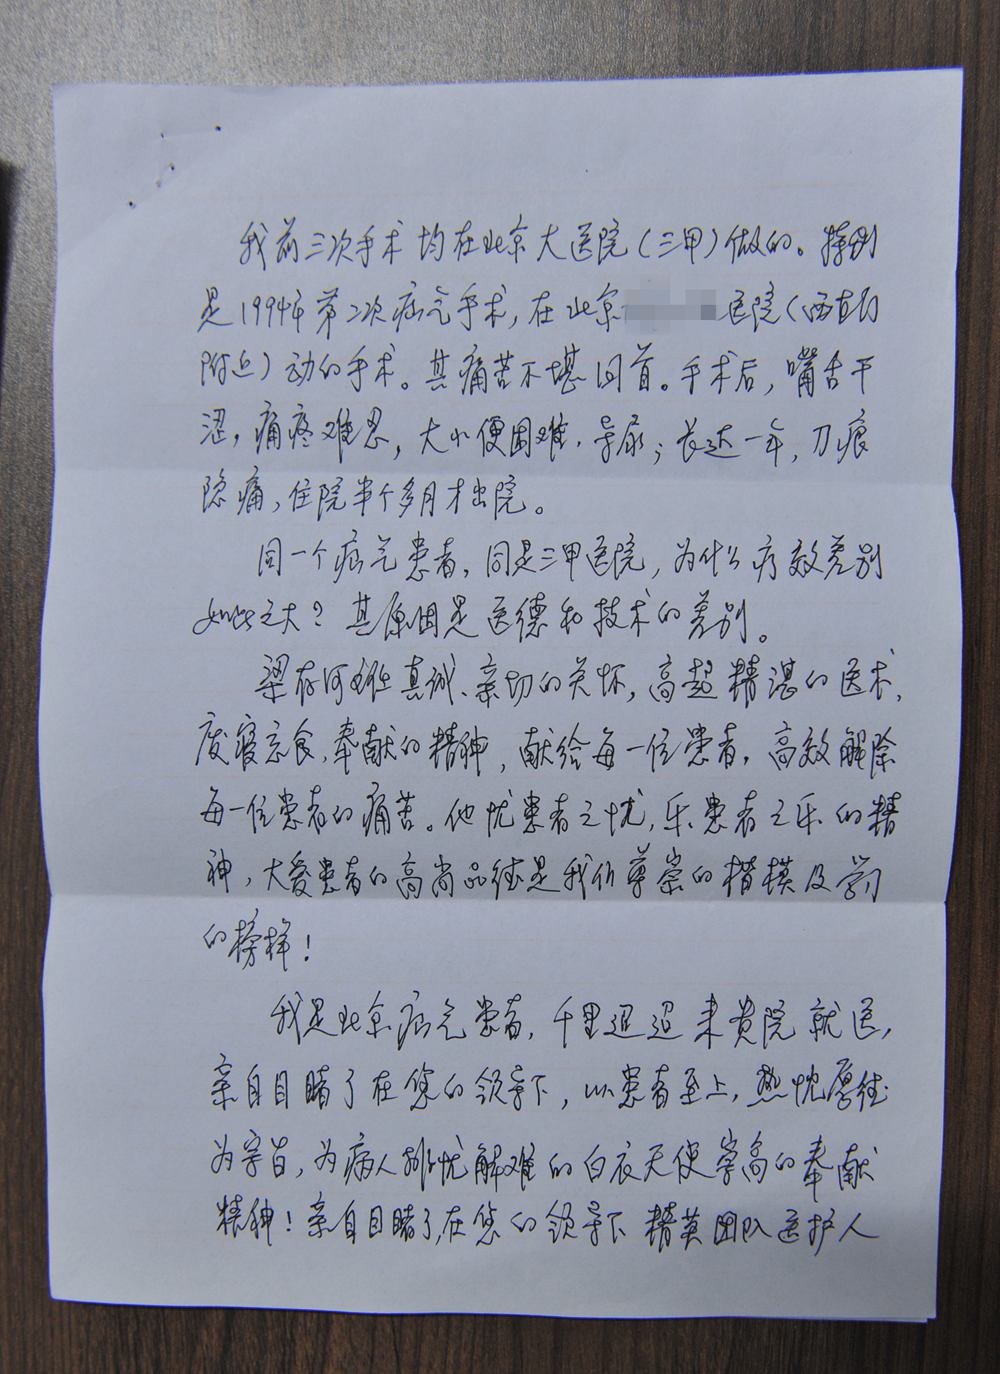 我前三次手术均在北京大医院(三甲)做的。特别
是1994年第二次疝气手术,在北京医院(西直门
附近)动的手术。其痛苦不堪回首。手术后,嘴舌干
涩,痛疼难忍,大小便困难,导尿;长达一年,刀痕
隐痛,住院半个多月才出院。
同一个疝气患者,同是三甲医院,为什么疗效差别
如此之大?其原因是医德和技术的差别。
梁存河主任真诚、亲切的关怀,高超精湛的医术,
废寝忘食,奉献的精神,献给每一位患者,高效解除
每一位患者的痛苦。他忧患者之忧,乐患者之乐的精
神,大爱患者的高尚品德是我们尊崇的楷模及学习
的榜样!
我是北京疝气患者,千里迢迢来贵院就医,
亲自目睹了在您的领导下,以患者至上,热忱厚德
为宗旨,为病人排忧解难的白衣天使崇高的奉献
精神!亲自目睹了,在您的领导下精英团队医护人